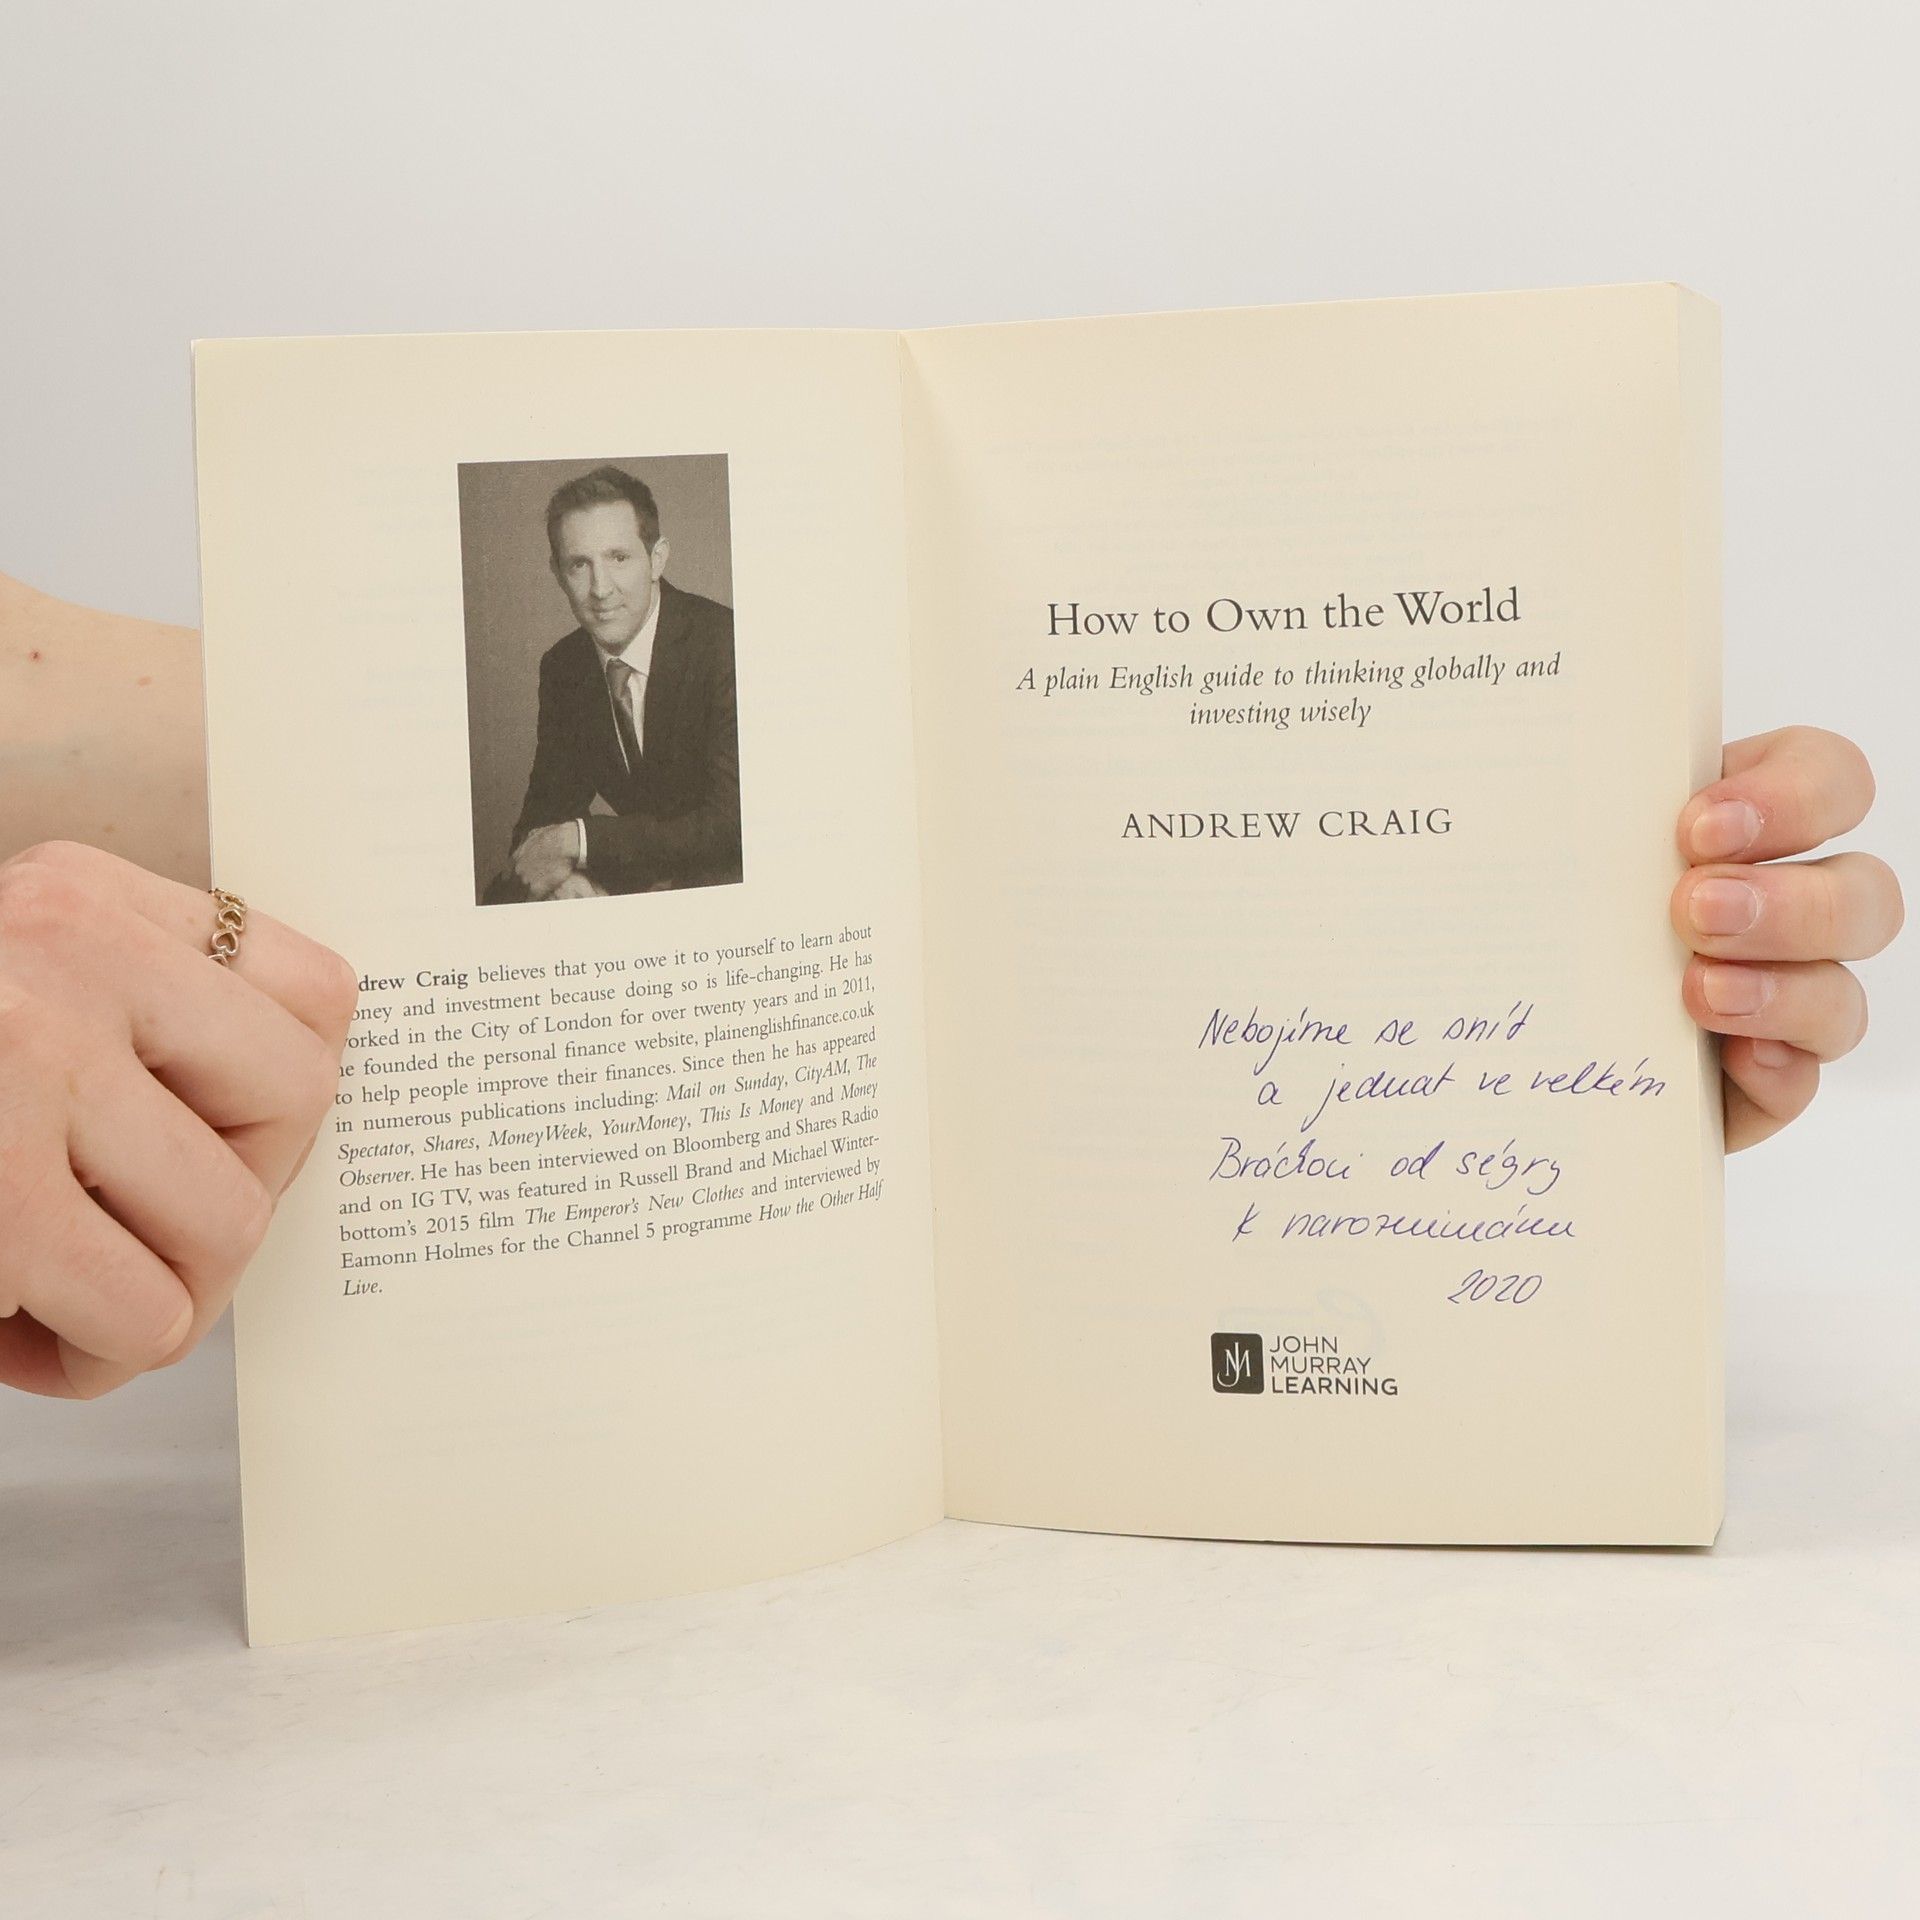 drew Craig believes that you owe it to yourself to learn about
oney and investment because doing so is life-changing. He has
orked in the City of London for over twenty years and in 2011,
he founded the personal finance website, plainenglishfinance.co.uk
to help people improve their finances. Since then he has appeared
in numerous publications including: Mail on Sunday, CityAM, The
Spectator, Shares, MoneyWeek, YourMoney, This Is Money and Money
Observer. He has been interviewed on Bloomberg and Shares Radio
and on IG TV, was featured in Russell Brand and Michael Winter-
bottom's 2015 film The Emperor's New Clothes and interviewed by
Eamonn Holmes for the Channel 5 programme How the Other Half
Live.
How to Own the World
A plain English guide to thinking globally and
investing wisely
ANDREW CRAIG
Nebojíme se snít
a jednat ve velkém
Bráchovi od ségry
k narozeninám
2020
JM
JOHN
MURRAY
LEARNING